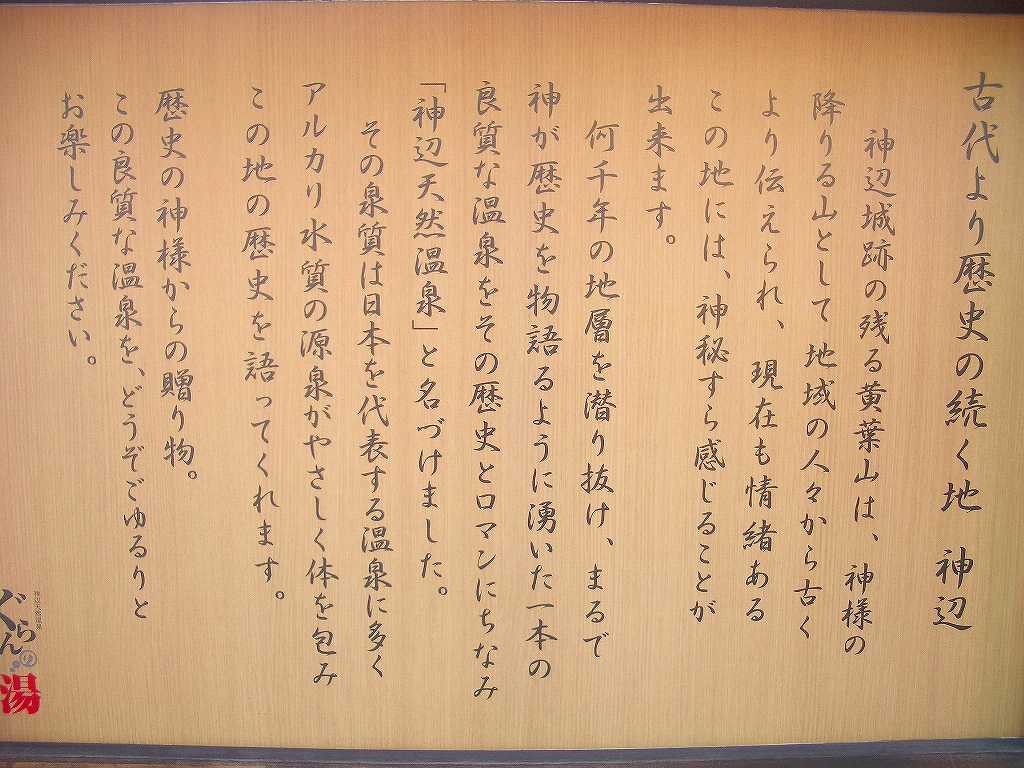 古代より歴史の続く地 神辺
神辺城跡の残る黄葉山は、神様の
降りる山として地域の人々から古く
より伝えられ、現在も情緒ある
この地には、神秘すら感じることが
出来ます。
何千年の地層を潜り抜け、まるで
神が歴史を物語るように湧いた一本の
良質な温泉をその歴史とロマンにちなみ
「神辺天然温泉」と名づけました。
その泉質は日本を代表する温泉に多く
アルカリ水質の源泉がやさしく体を包み
この地の歴史を語ってくれます。
歴史の神様からの贈り物。
この良質な温泉を、どうぞごゆるりと
お楽しみください。
神辺天然温泉
ぐらんの湯